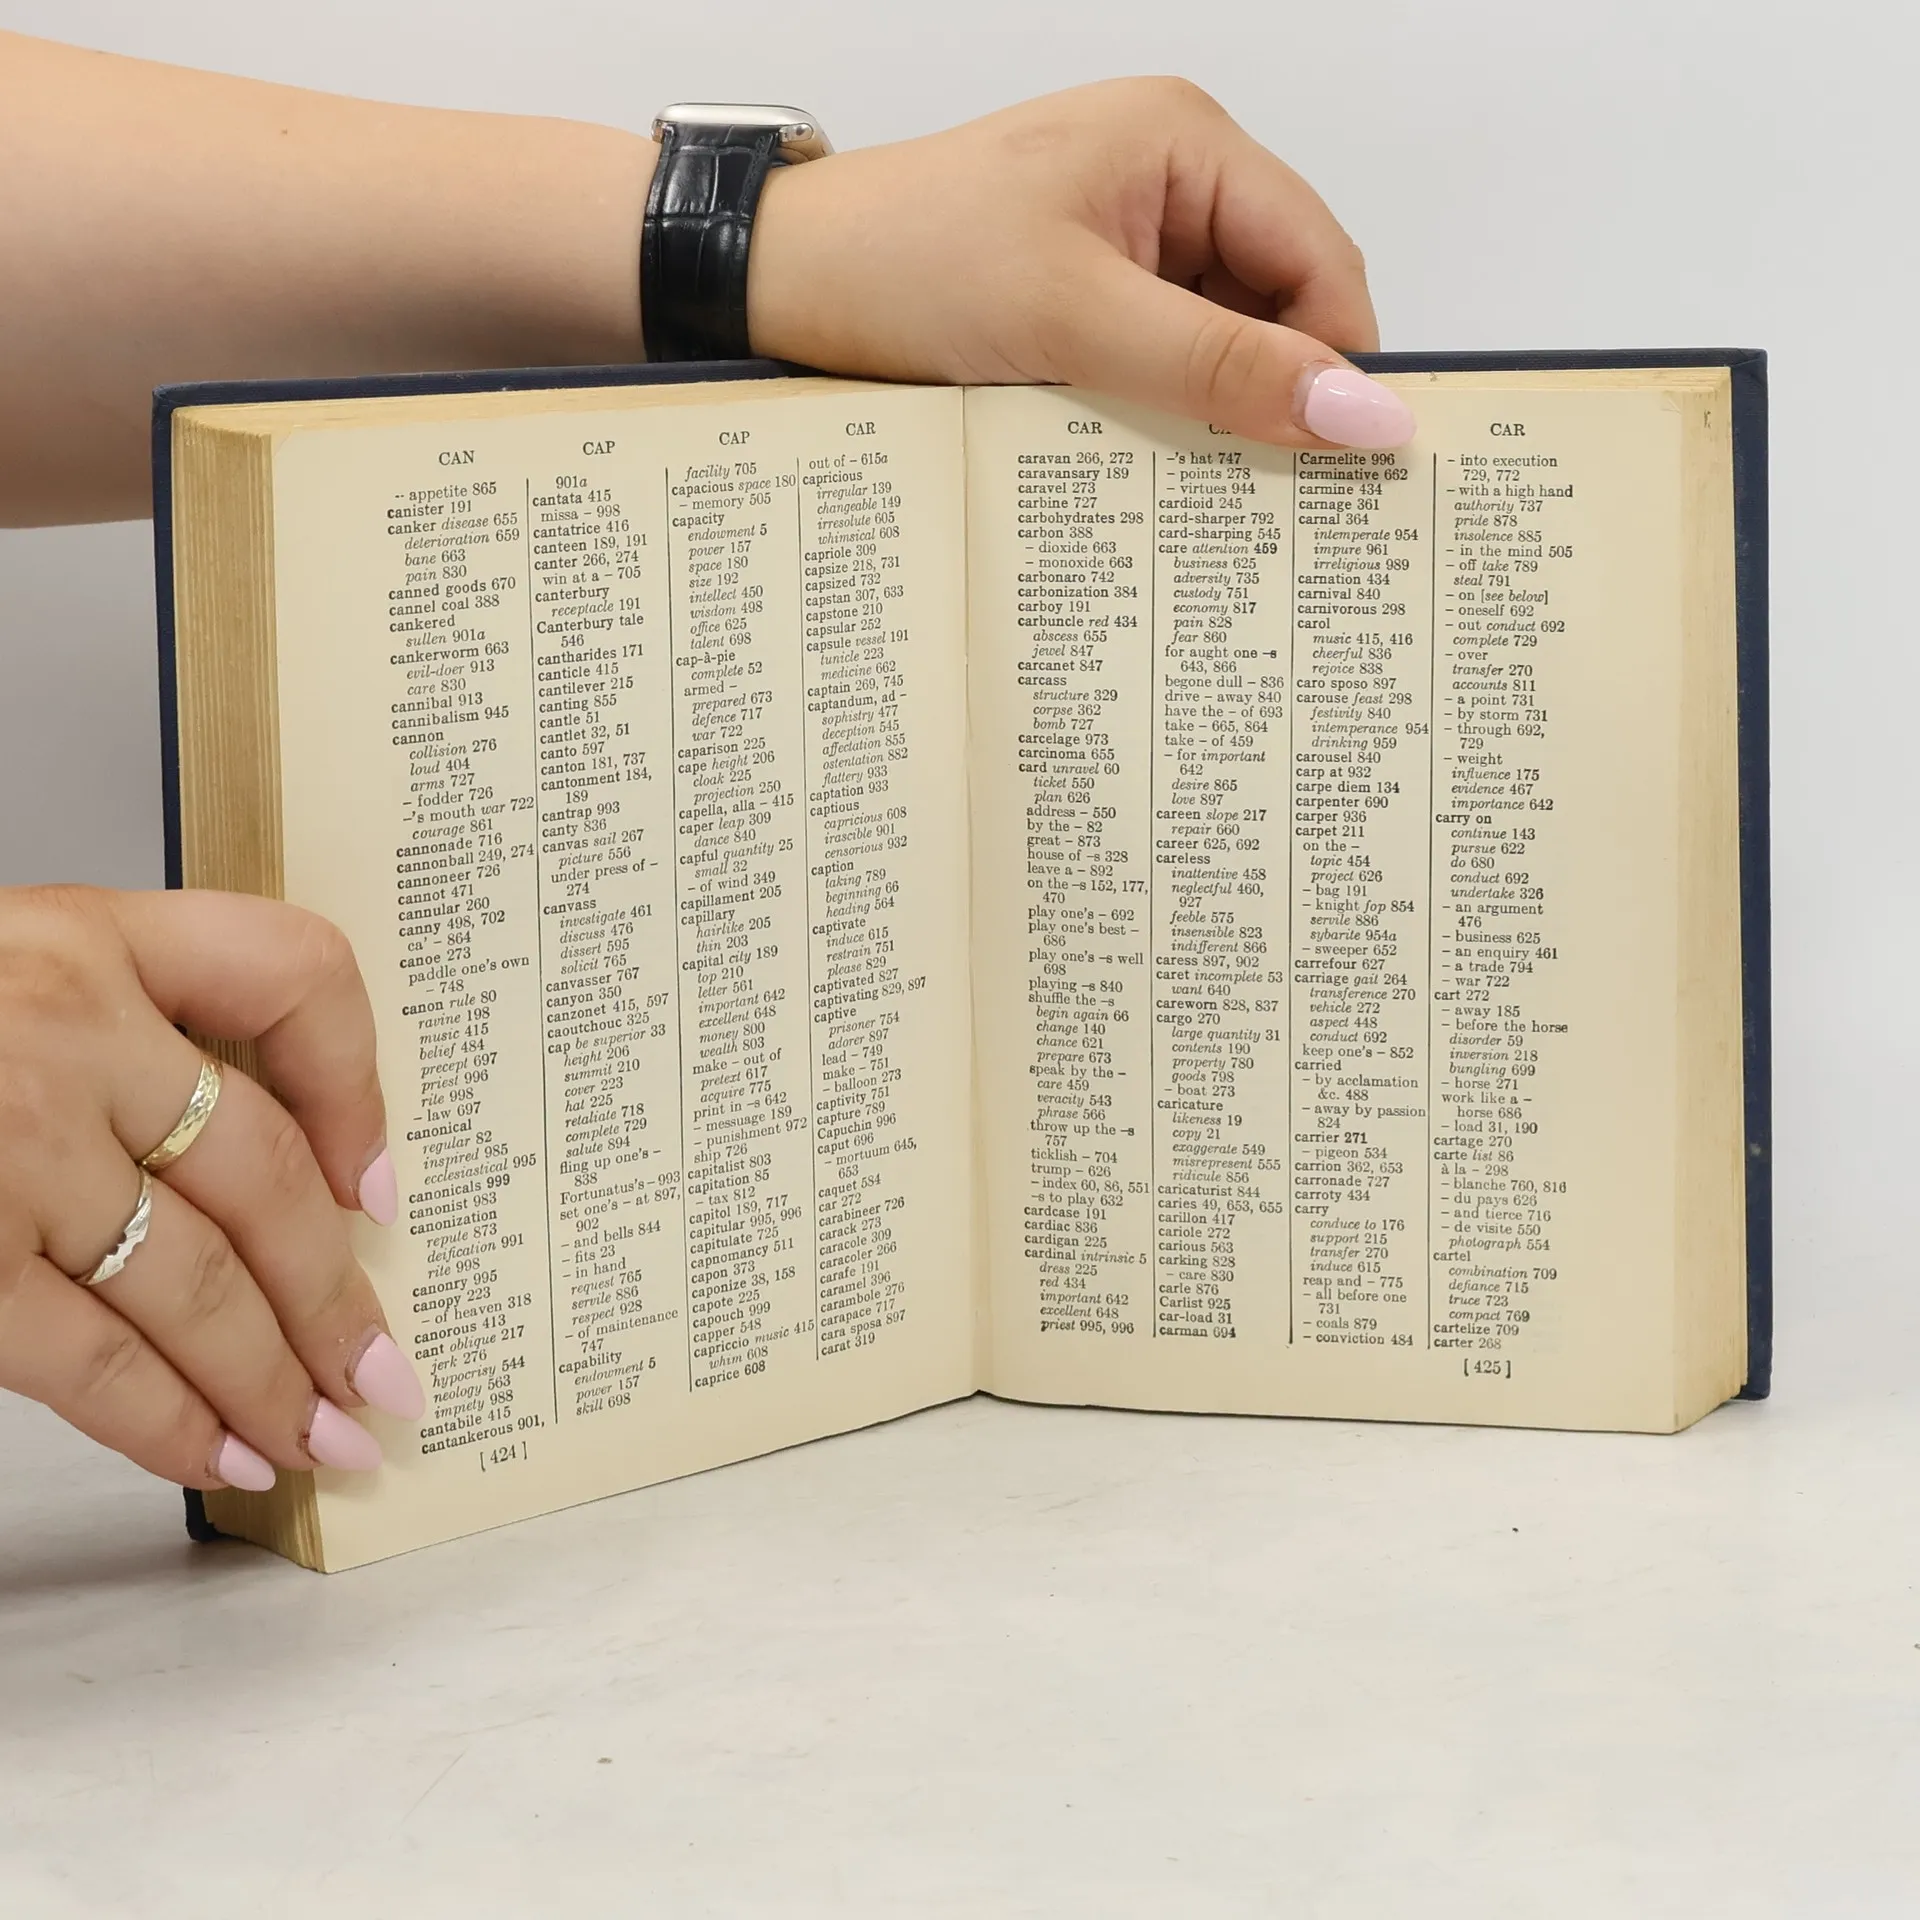 CAN
-- appetite 865
canister 191
canker disease 655
deterioration 659
bane 663
pain 830
canned goods 670
cannel coal 388
cankered
sullen 901a
cankerworm 663
evil-doer 913
care 830
cannibal 913
cannibalism 945
cannon
collision 276
loud 404
arms 727
– fodder 726
–'s mouth war 722
courage 861
cannonade 716
cannonball 249, 274
cannoneer 726
cannot 471
cannular 260
canny 498, 702
ca' – 864
canoe 273
paddle one's own
– 748
canon rule 80
ravine 198
music 415
belief 484
precept 697
priest 996
rite 998
– law 697
canonical
regular 82
inspired 985
ecclesiastical 995
canonicals 999
canonist 983
canonization
repute 873
deification 991
rite 998
canonry 995
canopy 223
– of heaven 318
canorous 413
cant oblique 217
jerk 276
hypocrisy 544
neology 563
impiety 988
cantabile 415
cantankerous 901,
[ 424 ]
CAP
901a
cantata 415
missa – 998
cantatrice 416
canteen 189, 191
canter 266, 274
win at a – 705
canterbury
receptacle 191
Canterbury tale
546
cantharides 171
canticle 415
cantilever 215
canting 855
cantle 51
cantlet 32, 51
canto 597
canton 181, 737
cantonment 184,
189
cantrap 993
canty 836
canvas sail 267
picture 556
under press of –
274
canvass
investigate 461
discuss 476
dissert 595
solicit 765
canvasser 767
canyon 350
canzonet 415, 597
caoutchouc 325
cap be superior 33
height 206
summit 210
cover 223
hat 225
retaliate 718
complete 729
salute 894
fling up one's –
838
Fortunatus's – 993
set one's – at 897,
902
– and bells 844
– fits 23
– in hand
request 765
servile 886
respect 928
– of maintenance
747
capability
endowment 5
power 157
skill 698
CAP
facility 705
capacious space 180
– memory 505
capacity
endowment 5
power 157
space 180
size 192
intellect 450
wisdom 498
office 625
talent 698
cap-à-pie
complete 52
armed –
prepared 673
defence 717
war 722
caparison 225
cape height 206
cloak 225
projection 250
capella, alla – 415
caper leap 309
dance 840
capful quantity 25
small 32
– of wind 349
capillament 205
capillary
hairlike 205
thin 203
capital city 189
top 210
letter 561
important 642
excellent 648
money 800
wealth 803
make – out of
pretext 617
acquire 775
print in –s 642
– message 189
– punishment 972
ship 726
capitalist 803
capitation 85
– tax 812
capitol 189, 717
capitular 995, 996
capitulate 725
capnomancy 511
capon 373
caponize 38, 158
capote 225
capouch 999
capper 548
capriccio music 415
whim 608
caprice 608
CAR
out of – 615a
capricious
irregular 139
changeable 149
irresolute 605
whimsical 608
capriole 309
capsize 218, 731
capsized 732
capstan 307, 633
capstone 210
capsular 252
capsule vessel 191
tunicle 223
medicine 662
captain 269, 745
captandum, ad –
sophistry 477
deception 545
affectation 855
ostentation 882
flattery 933
captation 933
captious
capricious 608
irascible 901
censorious 932
caption
taking 789
beginning 66
heading 564
captivate
induce 615
restrain 751
please 829
captivated 827
captivating 829, 897
captive
prisoner 754
adorer 897
lead – 749
make – 751
– balloon 273
captivity 751
capture 789
Capuchin 996
caput 696
– mortuum 645,
653
caquet 584
car 272
carabineer 726
carack 273
caracole 309
caracoler 266
carafe 191
caramel 396
carambole 276
carapace 717
cara sposa 897
carat 319
CAR
caravan 266, 272
caravansary 189
caravel 273
carbine 727
carbohydrates 298
carbon 388
– dioxide 663
– monoxide 663
carbonaro 742
carbonization 384
carboy 191
carbuncle red 434
abscess 655
jewel 847
carcanet 847
carcass
structure 329
corpse 362
bomb 727
carcelage 973
carcinoma 655
card unravel 60
ticket 550
plan 626
address – 550
by the – 82
great – 873
house of –s 328
leave a – 892
on the –s 152, 177,
470
play one's – 692
play one's best –
686
play one's –s well
698
playing –s 840
shuffle the –s
begin again 66
change 140
chance 621
prepare 673
speak by the –
care 459
veracity 543
phrase 566
throw up the –s
757
ticklish – 704
trump – 626
– index 60, 86, 551
–s to play 632
cardcase 191
cardiac 836
cardigan 225
cardinal intrinsic 5
dress 225
red 434
important 642
excellent 648
priest 995, 996
–'s hat 747
– points 278
– virtues 944
cardioid 245
card-sharper 792
card-sharping 545
care attention 459
business 625
adversity 735
custody 751
economy 817
pain 828
fear 860
for aught one –s
643, 866
begone dull – 836
drive – away 840
have the – of 693
take – 665, 864
take – of 459
– for important
642
desire 865
love 897
careen slope 217
repair 660
career 625, 692
careless
inattentive 458
neglectful 460,
927
feeble 575
insensible 823
indifferent 866
caress 897, 902
caret incomplete 53
want 640
careworn 828, 837
cargo 270
large quantity 31
contents 190
property 780
goods 798
– boat 273
caricature
likeness 19
copy 21
exaggerate 549
misrepresent 555
ridicule 856
caricaturist 844
caries 49, 653, 655
carillon 417
cariole 272
carious 563
carking 828
– care 830
carle 876
Carlist 925
car-load 31
carman 694
Carmelite 996
carminative 662
carmine 434
carnage 361
carnal 364
intemperate 954
impure 961
irreligious 989
carnation 434
carnival 840
carnivorous 298
carol
music 415, 416
cheerful 836
rejoice 838
caro sposo 897
carouse feast 298
festivity 840
intemperance 954
drinking 959
carousel 840
carp at 932
carpe diem 134
carpenter 690
carper 936
carpet 211
on the –
topic 454
project 626
– bag 191
– knight fop 854
servile 886
sybarite 954a
– sweeper 652
carrefour 627
carriage gait 264
transference 270
vehicle 272
aspect 448
conduct 692
keep one's – 852
carried
– by acclamation
&c. 488
– away by passion
824
carrier 271
– pigeon 534
carrion 362, 653
carronade 727
carroty 434
carry
conduce to 176
support 215
transfer 270
induce 615
reap and – 775
– all before one
731
– coals 879
– conviction 484
CAR
– into execution
729, 772
– with a high hand
authority 737
pride 878
insolence 885
– in the mind 505
– off take 789
steal 791
– on [see below]
– oneself 692
– out conduct 692
complete 729
– over
transfer 270
accounts 811
– a point 731
– by storm 731
– through 692,
729
– weight
influence 175
evidence 467
importance 642
carry on
continue 143
pursue 622
do 680
conduct 692
undertake 326
– an argument
476
– business 625
– an enquiry 461
– a trade 794
– war 722
cart 272
– away 185
– before the horse
disorder 59
inversion 218
bungling 699
– horse 271
work like a –
horse 686
– load 31, 190
cartage 270
carte list 86
à la – 298
– blanche 760, 816
– du pays 626
– and tierce 716
– de visite 550
photograph 554
cartel
combination 709
defiance 715
truce 723
compact 769
cartelize 709
carter 268
[ 425 ]